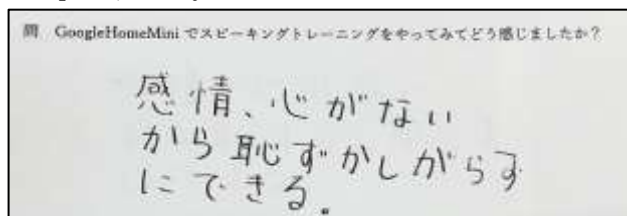 問　GoogleHomeMini でスピーキングトレーニングをやってみてどう感じましたか？
感情、心がない
から恥ずかしがらず
にできる。